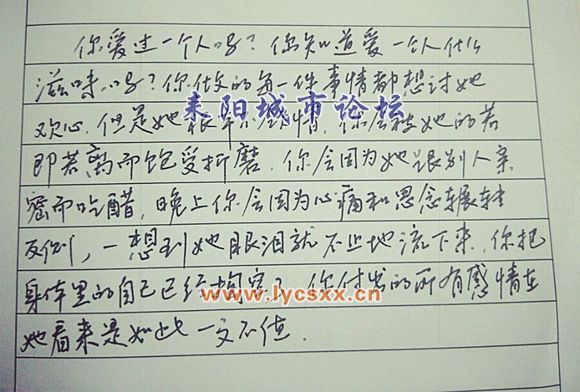 你爱过一个人吗?你知道爱一个人什么
滋味吗?你做的每一件事情都想讨她
耒阳城市论坛
欢心.但是她根本不领情,你会被她的若
即若离而饱受折磨.你会因为她跟别人亲
密而吃醋,晚上你会因为心痛和思念辗转
反侧,一想到她眼泪就不止地流下来.你把
身体里的自己已经掏空了.你付出的所有感情在
www.lycsxx.cn
她看来是如此一文不值.